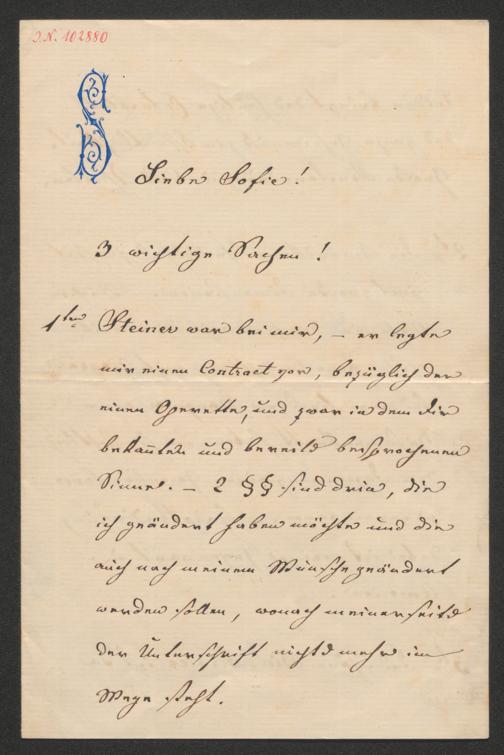 I.N. 102880
S
Liebe Sofie!
3 wichtige Sachen!
1tens Steiner war bei mir, – er legte
mir einen Contract vor, bezüglich der
einen Operette, und zwar in dem Dir
bekannten und bereits besprochenen
Sinne. – 2 §§ sind drin, die
ich geändert haben möchte und die
auch nach meinem Wunsche geändert
werden sollen, wonach meinerseits
der Unterschrift nichts mehr im
Wege steht.